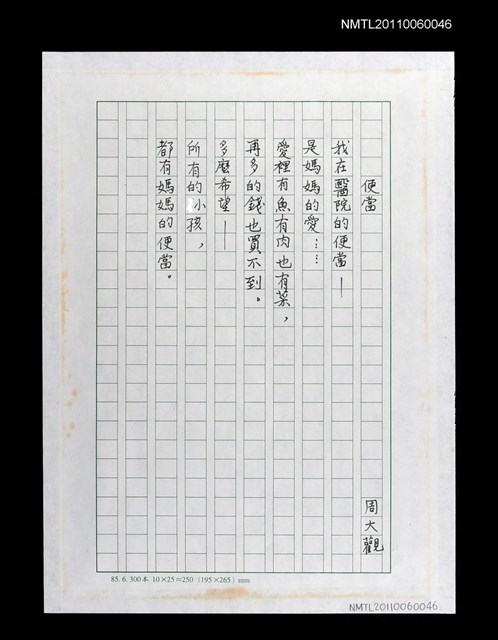 NMTL20110060046
便當
周大觀
我在醫院的便當—
是媽媽的愛……
愛裡有魚有肉也有菜，
再多的錢也買不到。
多麼希望——
所有的小孩，
都有媽媽的便當。
85. 6. 300本 10×25=250 (195×265) mm
NMTL20110060046